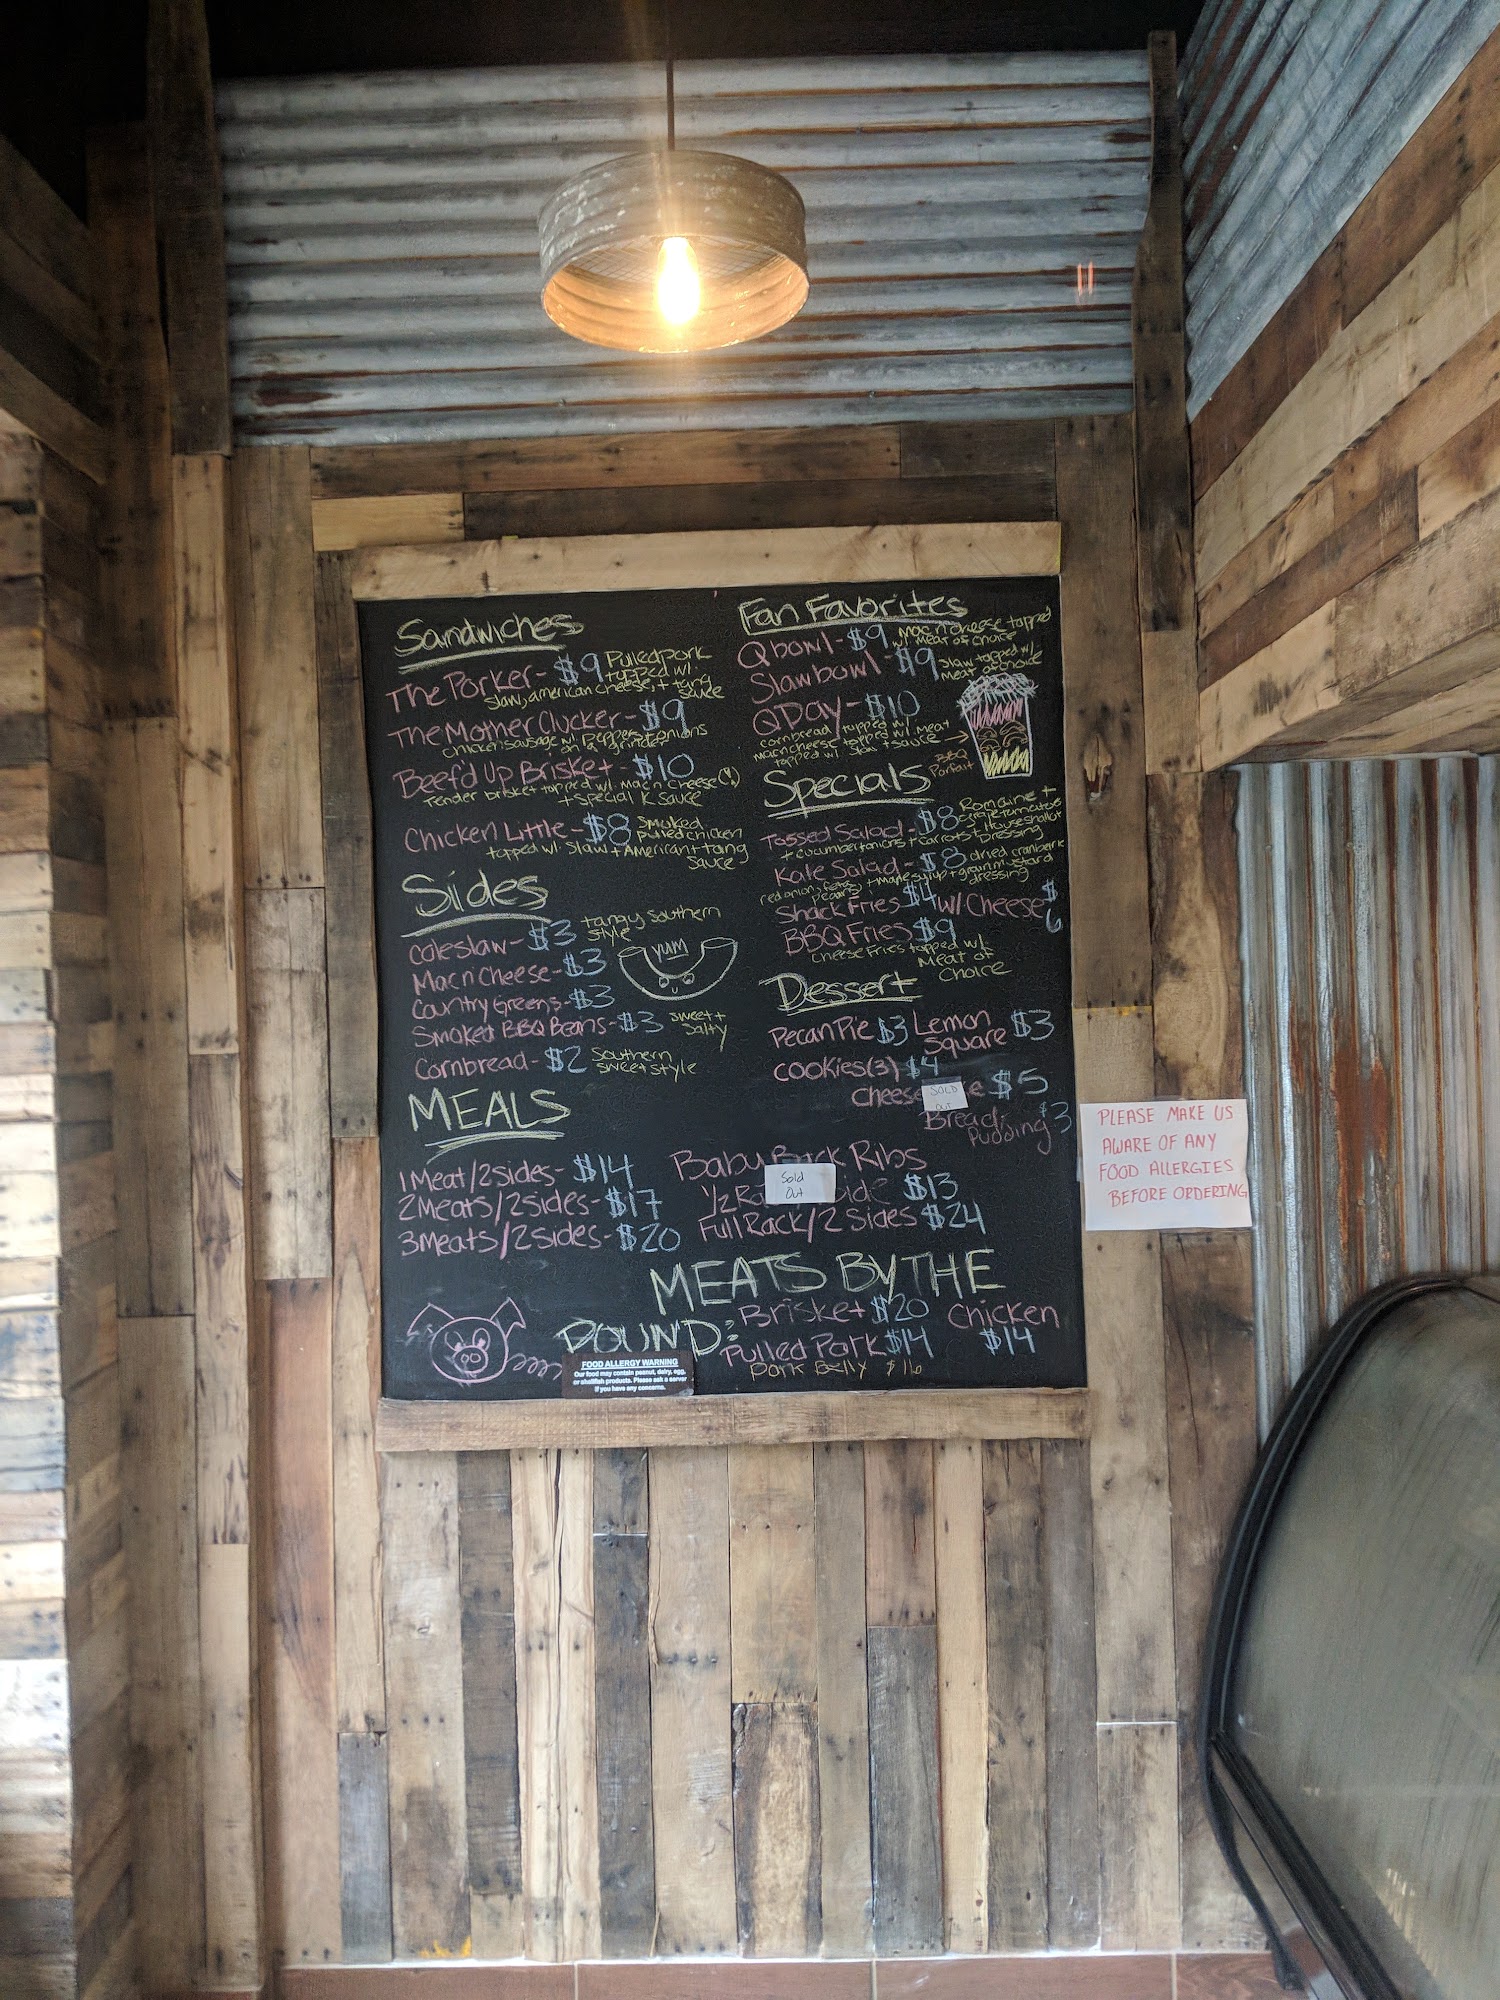 Sandwiches
The Porker - $9 Pulled pork
topped w/
slaw, american cheese, + tang
sauce
The Mother Clucker - $9
chicken sausage w/ peppers + onions
on a grinder
Beef'd Up Brisket - $10
Tender brisket topped w/ mac n cheese (!)
+ special K sauce
Chicken Little - $8 Smoked
pulled chicken
topped w/ slaw + American + tang
sauce
Sides
Coleslaw - $3 tangy southern
style
Mac n' Cheese - $3
Country Greens - $3
Smoked BBQ Beans - $3 sweet +
salty
Cornbread - $2 Southern
sweet style
YUM
MEALS
1 Meat/2 Sides - $14
2 Meats/2 Sides - $17
3 Meats/2 Sides - $20
Fan Favorites
Q bowl - $9 Mac n cheese topped
w/ meat of choice
Slawbowl - $9 Slaw topped w/
meat of choice
Q Day - $10
cornbread topped w/
mac n cheese topped w/ meat
topped w/ slaw + sauce
BBQ
Parfait
Specials
Tossed Salad - $8 Romaine +
grape tomatoes
+ cucumber + onions + carrots + House shallot
Dressing
Kale Salad - $8 dried cranberry
red onion, feta, + maple syrup + grain mustard
pecans dressing
Shack Fries $4 w/ Cheese $6
BBQ Fries $9
cheese Fries topped w/
meat of
choice
Dessert
Pecan Pie $3 Lemon
Square $3
cookies (3) $4
cheese $5
SOLD
OUT
Bread
Pudding $3
Baby Back Ribs
1/2 Ra side $13
Sold
Out
Full Rack/2 Sides $24
MEATS BY THE
POUND:
Brisket $20 Chicken
$14
Pulled Pork $14
Pork Belly $16
FOOD ALLERGY WARNING
Our food may contain peanut, dairy, egg,
or shellfish products. Please ask a server
if you have any concerns.
PLEASE MAKE US
AWARE OF ANY
FOOD ALLERGIES
BEFORE ORDERING